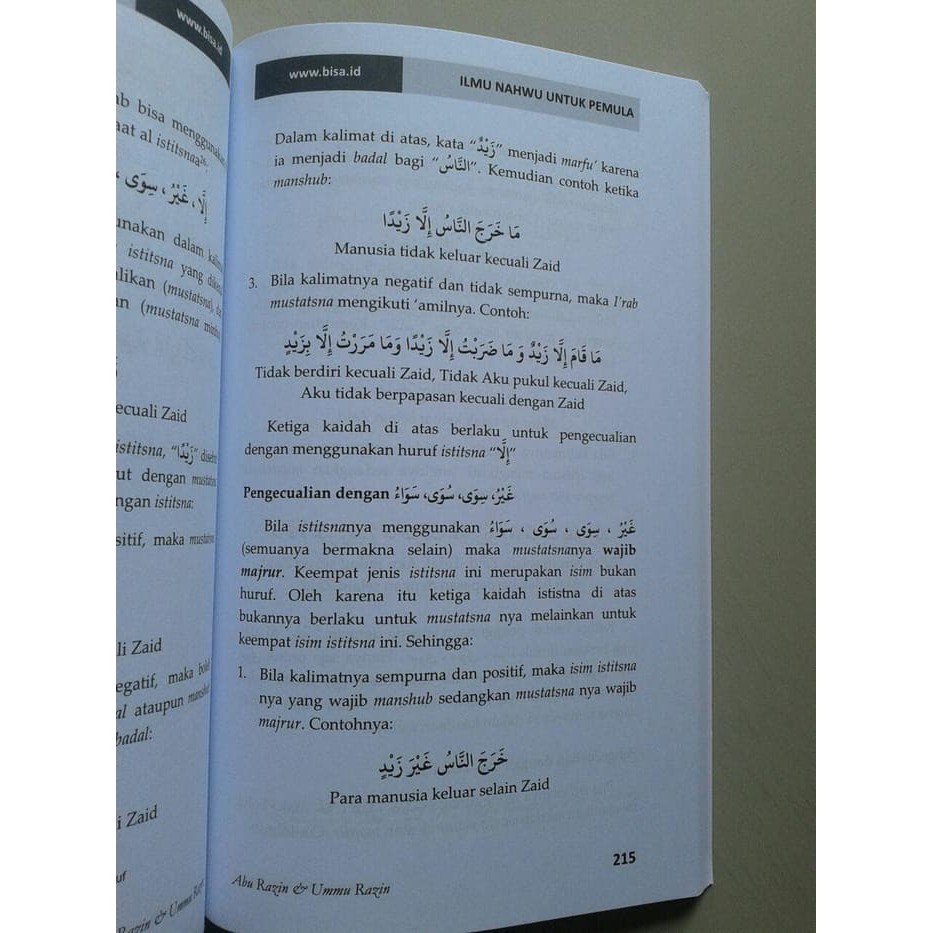 www.bisa.id
ab bisa menggunakan
aat al istitsnaa26.
إِلَّا ، غَيْرُ ، سِوَى ،
unakan dalam
istitsna yang
alikan (mustatsna),
an (mustatsna
ecuali Zaid
istitsna, "زَيْدًا"
ut dengan
ngan istitsna:
sitif, maka
li Zaid
egatif, maka
al ataupun
badal:
i Zaid
uf
Razin & Ummu
www.bisa.id
ILMU NAHWU UNTUK PEMULA
Dalam kalimat di atas, kata "زَيْدٌ" menjadi marfu' karena
ia menjadi badal bagi "النَّاسُ". Kemudian contoh ketika
manshub:
مَا خَرَجَ النَّاسُ إِلَّا زَيْدًا
Manusia tidak keluar kecuali Zaid
3. Bila kalimatnya negatif dan tidak sempurna, maka I'rab
mustatsna mengikuti 'amilnya. Contoh:
مَا قَامَ إِلَّا زَيْدٌ وَ مَا ضَرَبْتُ إِلَّا زَيْدًا وَمَا مَرَرْتُ إِلَّا بِزَيْدٍ
Tidak berdiri kecuali Zaid, Tidak Aku pukul kecuali Zaid,
Aku tidak berpapasan kecuali dengan Zaid
Ketiga kaidah di atas berlaku untuk pengecualian
dengan menggunakan huruf istitsna "إِلَّا"
Pengecualian dengan غَيْرُ، سِوَى، سُوَى، سَوَاءُ
Bila istitsnanya menggunakan غَيْرُ ، سِوَى ، سُوَى ، سَوَاءُ
(semuanya bermakna selain) maka mustatsnanya wajib
majrur. Keempat jenis istitsna ini merupakan isim bukan
huruf. Oleh karena itu ketiga kaidah ististna di atas
bukannya berlaku untuk mustatsna nya melainkan untuk
keempat isim istitsna ini. Sehingga:
1. Bila kalimatnya sempurna dan positif, maka isim istitsna
nya yang wajib manshub sedangkan mustatsna nya wajib
majrur. Contohnya:
خَرَجَ النَّاسُ غَيْرَ زَيْدٍ
Para manusia keluar selain Zaid
215
Abu Razin & Ummu Razin